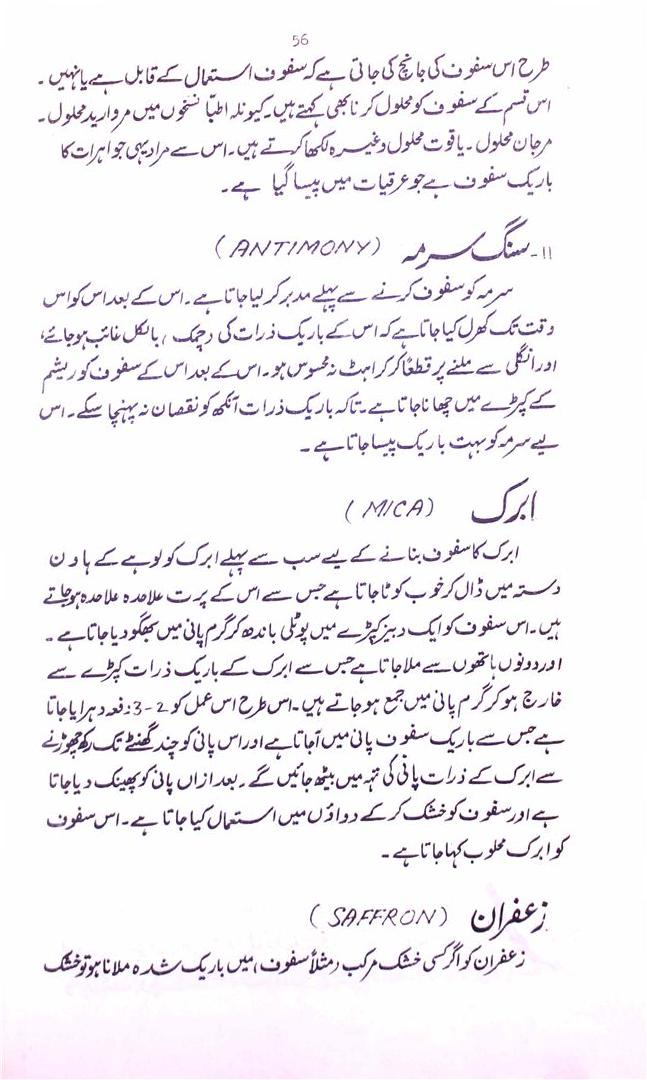 56
طرح اس سفوف کی جانچ کی جاتی ہے کہ سفوف استعمال کے قابل ہے یا نہیں۔
اس قسم کے سفوف کو محلول کرنا بھی کہتے ہیں۔ کیونکہ اطبّا نسخوں میں مروارید محلول۔
مرجان محلول۔ یاقوت محلول وغیرہ لکھا کرتے ہیں۔ اس سے مراد یہی جواہرات کا
باریک سفوف ہے جو عرقیات میں پیسا گیا ہے۔
۱۱۔ سنگ سرمہ (ANTIMONY)
سرمہ کو سفوف کرنے سے پہلے مدبر کر لیا جاتا ہے۔ اس کے بعد اس کو اس
وقت تک کھرل کیا جاتا ہے کہ اس کے باریک ذرات کی (چمک) بالکل غائب ہو جائے،
اور انگلی سے ملنے پر قطعًا کرکراہٹ نہ محسوس ہو۔ اس کے بعد اس کے سفوف کو ریشم
کے کپڑے میں چھانا جاتا ہے۔ تاکہ باریک ذرات آنکھ کو نقصان نہ پہنچا سکے۔ اس
لیے سرمہ کو بہت باریک پیسا جاتا ہے۔
ابرک (MICA)
ابرک کا سفوف بنانے کے لیے سب سے پہلے ابرک کو لوہے کے ہاون
دستہ میں ڈال کر خوب کوٹا جاتا ہے جس سے اس کے پرت علاحدہ علاحدہ ہو جاتے
ہیں۔ اس سفوف کو ایک دبیز کپڑے میں پوٹلی باندھ کر گرم پانی میں بھگو دیا جاتا ہے۔
اور دونوں ہاتھوں سے ملا جاتا ہے جس سے ابرک کے باریک ذرات کپڑے سے
خارج ہو کر گرم پانی میں جمع ہو جاتے ہیں۔ اس طرح اس عمل کو 2-3 دفعہ دہرایا جاتا
ہے جس سے باریک سفوف پانی میں آجاتا ہے اور اس پانی کو چند گھنٹے تک رکھ چھوڑنے
سے ابرک کے ذرات پانی کی تہہ میں بیٹھ جائیں گے۔ بعد ازاں پانی کو پھینک دیا جاتا
ہے اور سفوف کو خشک کر کے دواؤں میں استعمال کیا جاتا ہے۔ اس سفوف
کو ابرک محلوب کہا جاتا ہے۔
زعفران (SAFFRON)
زعفران کو اگر کسی خشک مرکب (مثلًا سفوف) میں باریک شدہ ملانا ہو تو خشک